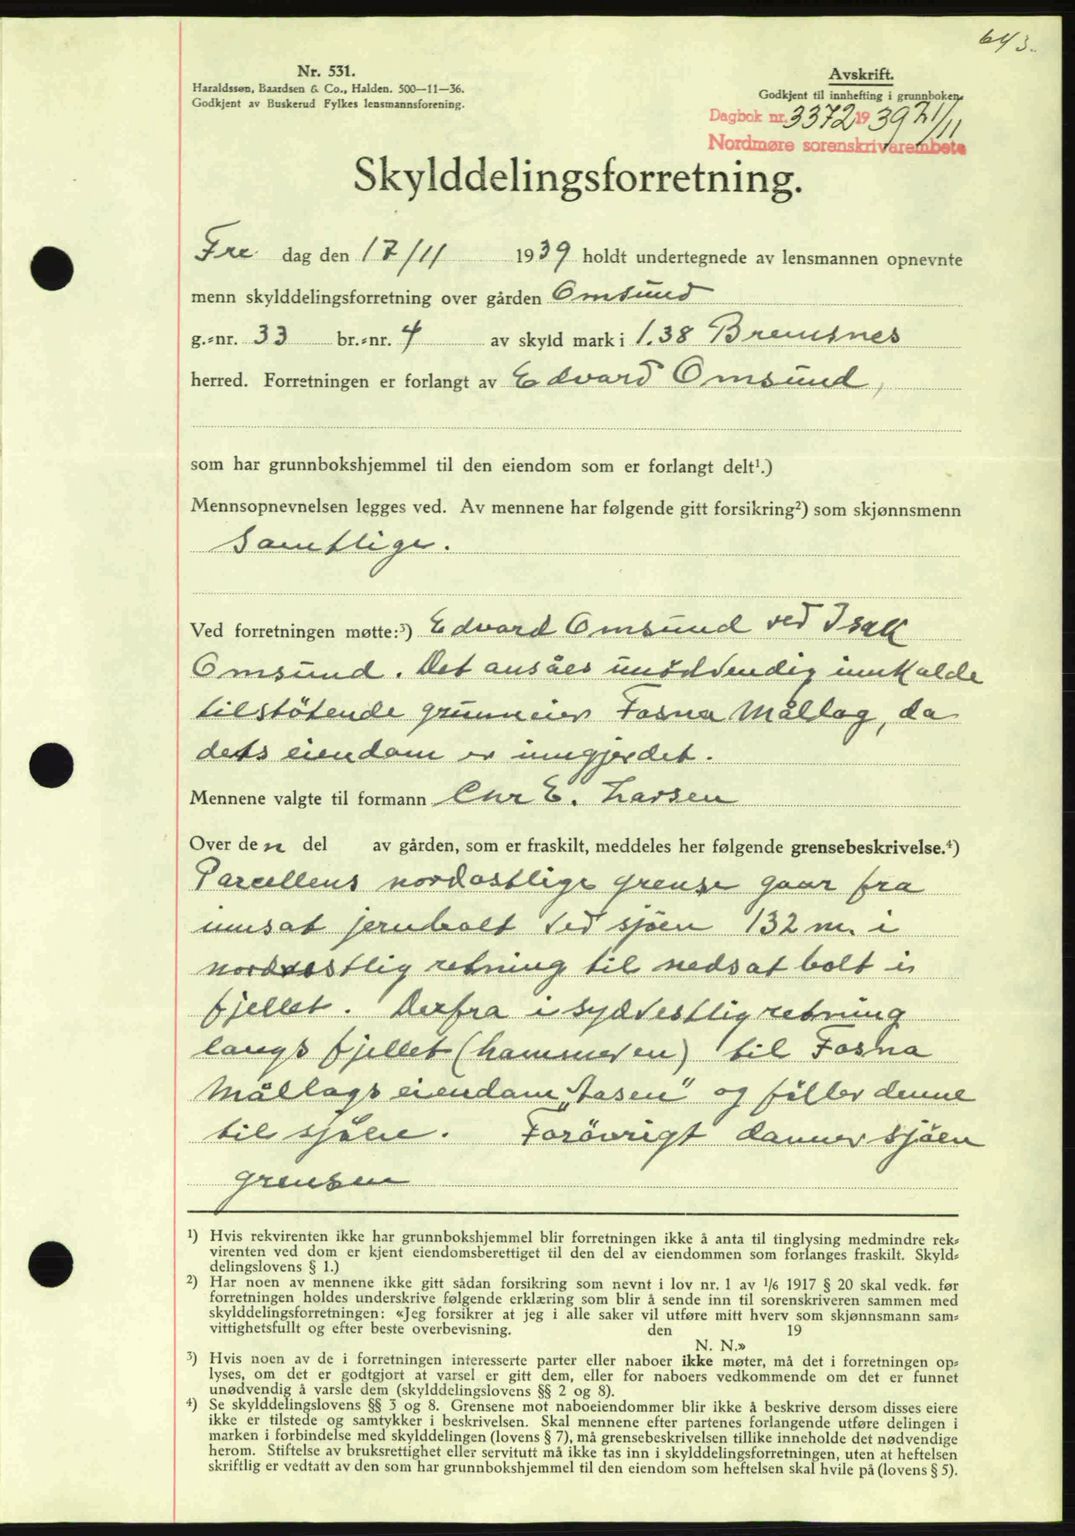 643.
Nr. 531.
Haraldssøn, Baardsen & Co., Halden. 500—11—36.
Godkjent av Buskerud Fylkes lensmannsforening.
Avskrift.
Godkjent til innhefting i grunnboken.
Dagbok nr. 3372 1939 21/11
Nordmøre sorenskriverembete
Skylddelingsforretning.
Fre dag den 17/11 1939 holdt undertegnede av lensmannen opnevnte
menn skylddelingsforretning over gården Omsund
g.-nr. 33 br.-nr. 4 av skyld mark i 1.38 Bremsnes
herred. Forretningen er forlangt av Edvard Omsund,
som har grunnbokshjemmel til den eiendom som er forlangt delt¹.)
Mennsopnevnelsen legges ved. Av mennene har følgende gitt forsikring²) som skjønnsmenn
Samtlige.
Ved forretningen møtte:³) Edvard Omsund ved Isak
Omsund. Det ansåes unödvendig innkalde
tilstötende grunneier Fosna Mållag, da
dets eiendom er inngjerdet.
Mennene valgte til formann Chr E. Larsen
Over den del av gården, som er fraskilt, meddeles her følgende grensebeskrivelse.⁴)
Parcellens nordostlige grense gaar fra
innsat jernbolt ved sjöen 132 m. i
nordvestlig retning til nedsat bolt i
fjellet. Derfra i sydvestlig retning
langs fjellet (hammeren) til Fosna
Mållags eiendom „Aasen" og föller denne
til sjöen. Forövrigt danner sjöen
grensen
¹) Hvis rekvirenten ikke har grunnbokshjemmel blir forretningen ikke å anta til tinglysing medmindre rek-
virenten ved dom er kjent eiendomsberettiget til den del av eiendommen som forlanges fraskilt. Skyld-
delingslovens § 1.)
²) Har noen av mennene ikke gitt sådan forsikring som nevnt i lov nr. 1 av 1/6 1917 § 20 skal vedk. før
forretningen holdes underskrive følgende erklæring som blir å sende inn til sorenskriveren sammen med
skylddelingsforretningen: «Jeg forsikrer at jeg i alle saker vil utføre mitt hverv som skjønnsmann sam-
vittighetsfullt og efter beste overbevisning. den 19
N. N.»
³) Hvis noen av de i forretningen interesserte parter eller naboer ikke møter, må det i forretningen op-
lyses, om det er godtgjort at varsel er gitt dem, eller for naboers vedkommende om det er funnet
unødvendig å varsle dem (skylddelingslovens §§ 2 og 8).
⁴) Se skylddelingslovens §§ 3 og 8. Grensene mot naboeiendommer blir ikke å beskrive dersom disses eiere
ikke er tilstede og samtykker i beskrivelsen. Skal mennene efter partenes forlangende utføre delingen i
marken i forbindelse med skylddelingen (lovens § 7), må grensebeskrivelsen tillike inneholde det nødvendige
herom. Stiftelse av bruksrettighet eller servitutt må ikke tas inn i skylddelingsforretningen, uten at heftelsen
skriftlig er vedtatt av den som har grunnbokshjemmel til den eiendom som heftelsen skal hvile på (lovens § 5).